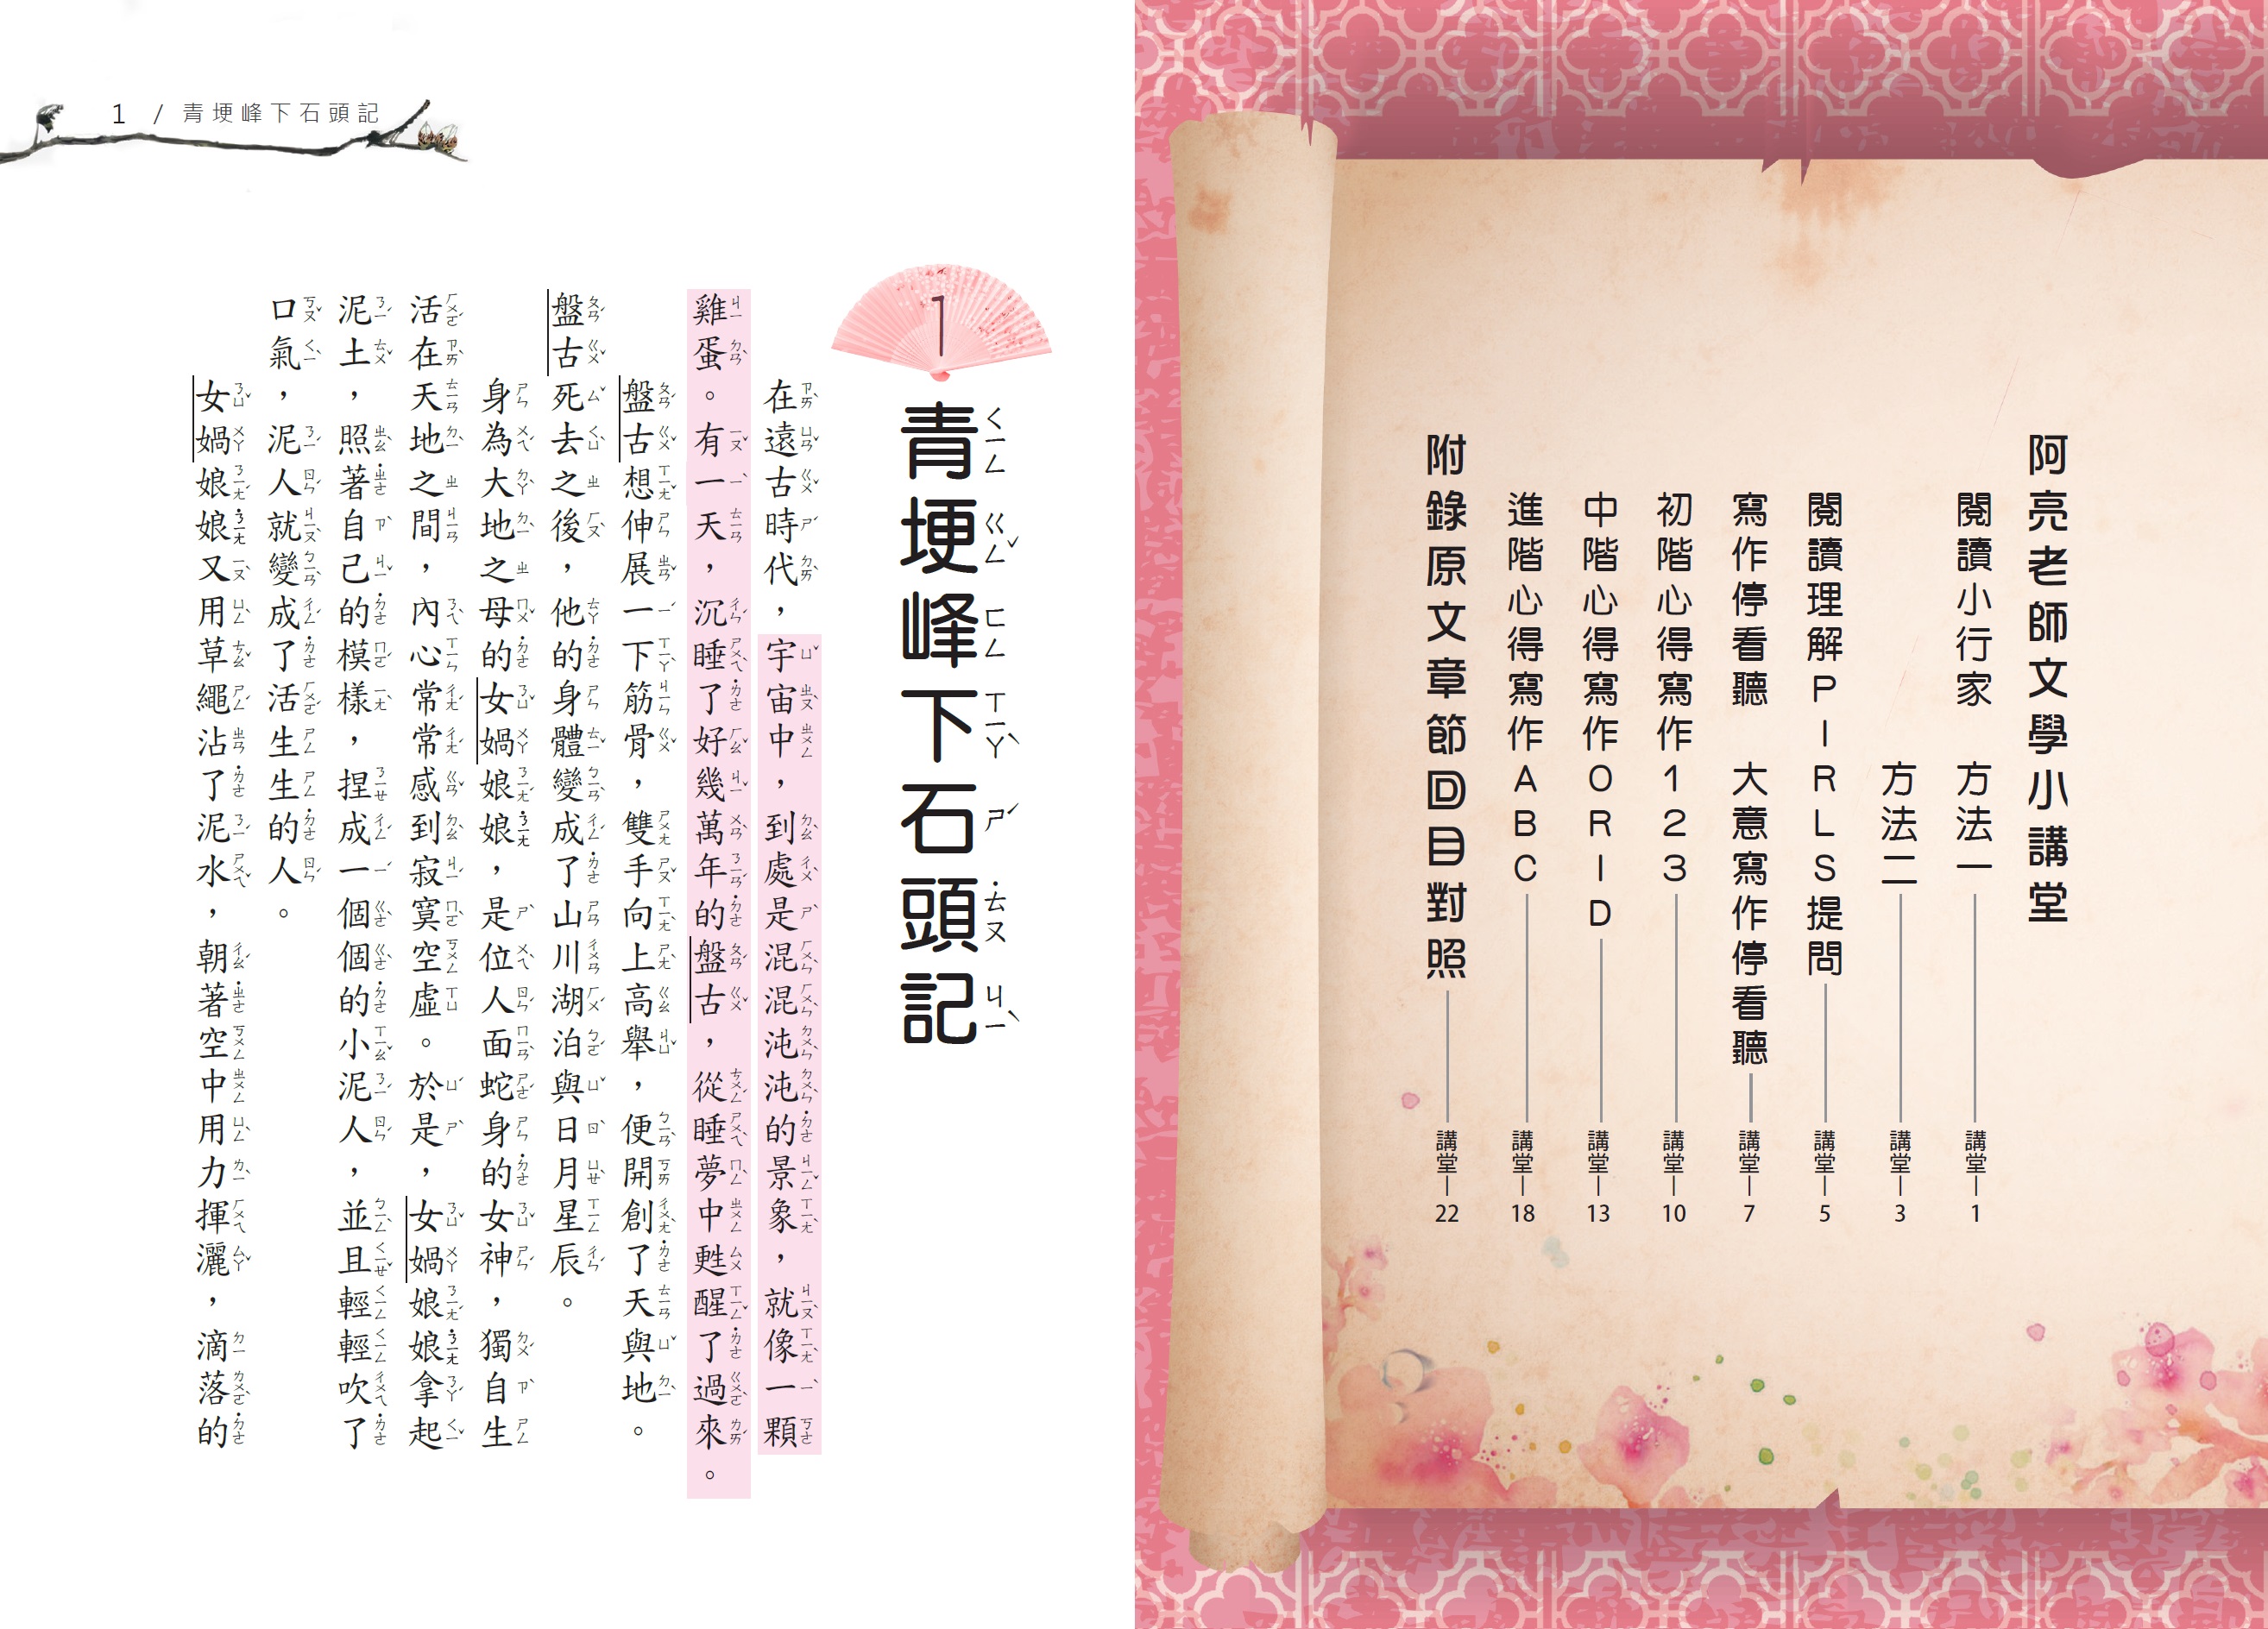 阿亮老師文學小講堂
閱讀小行家 方法一 講堂—1
方法二 講堂—3
閱讀理解PIRLS提問 講堂—5
寫作停看聽 大意寫作停看聽 講堂—7
初階心得寫作123 講堂—10
中階心得寫作ORID 講堂—13
進階心得寫作ABC 講堂—18
附錄原文章節回目對照 講堂—22
1 / 青埂峰下石頭記
1
青埂峰下石頭記
ㄑㄧㄥ ㄍㄥˇ ㄈㄥ ㄒㄧㄚˋ ㄕˊ ˙ㄊㄡ ㄐㄧˋ
在遠古時代，宇宙中，到處是混混沌沌的景象，就像一顆
雞蛋。有一天，沉睡了好幾萬年的盤古，從睡夢中甦醒了過來。
盤古想伸展一下筋骨，雙手向上高舉，便開創了天與地。
盤古死去之後，他的身體變成了山川湖泊與日月星辰。
身為大地之母的女媧娘娘，是位人面蛇身的女神，獨自生
活在天地之間，內心常常感到寂寞空虛。於是，女媧娘娘拿起
泥土，照著自己的模樣，捏成一個個的小泥人，並且輕輕吹了
口氣，泥人就變成了活生生的人。
女媧娘娘又用草繩沾了泥水，朝著空中用力揮灑，滴落的